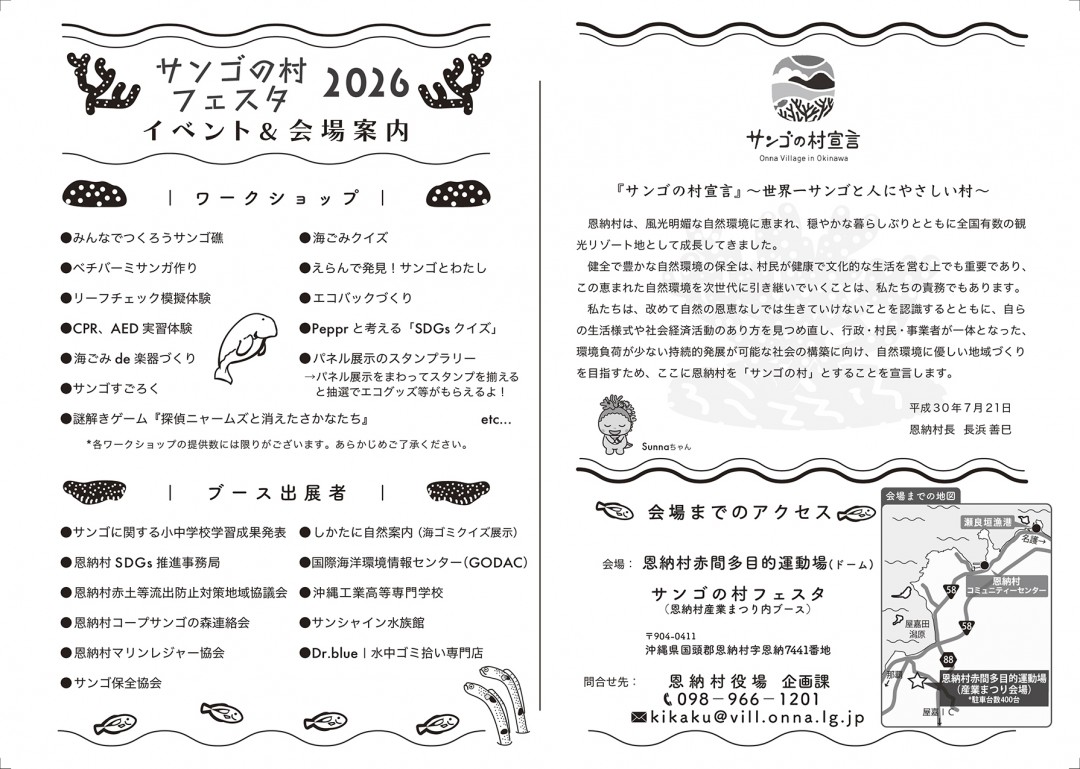 サンゴの村
フェスタ 2026
イベント&会場案内
ワークショップ
●みんなでつくろうサンゴ礁
●ベチバーミサンガ作り
●リーフチェック模擬体験
●CPR、AED 実習体験
●海ごみ de 楽器づくり
●サンゴすごろく
●謎解きゲーム『探偵ニャームズと消えたさかなたち』
●海ごみクイズ
●えらんで発見!サンゴとわたし
●エコバックづくり
●Peppr と考える「SDGs クイズ」
●パネル展示のスタンプラリー
→パネル展示をまわってスタンプを揃える
と抽選でエコグッズ等がもらえるよ!
etc...
*各ワークショップの提供数には限りがございます。あらかじめご了承ください。
ブース出展者
●サンゴに関する小中学校学習成果発表
●恩納村 SDGs 推進事務局
●恩納村赤土等流出防止対策地域協議会
●恩納村コープサンゴの森連絡会
●恩納村マリンレジャー協会
●サンゴ保全協会
●しかたに自然案内(海ゴミクイズ展示)
●国際海洋環境情報センター(GODAC)
●沖縄工業高等専門学校
●サンシャイン水族館
●Dr.blue|水中ゴミ拾い専門店
サンゴの村宣言
Onna Village in Okinawa
『サンゴの村宣言』~世界一サンゴと人にやさしい村~
恩納村は、風光明媚な自然環境に恵まれ、穏やかな暮らしぶりとともに全国有数の観
光リゾート地として成長してきました。
健全で豊かな自然環境の保全は、村民が健康で文化的な生活を営む上でも重要であり、
この恵まれた自然環境を次世代に引き継いでいくことは、私たちの責務でもあります。
私たちは、改めて自然の恩恵なしでは生きていけないことを認識するとともに、自ら
の生活様式や社会経済活動のあり方を見つめ直し、行政・村民・事業者が一体となった、
環境負荷が少ない持続的発展が可能な社会の構築に向け、自然環境に優しい地域づくり
を目指すため、ここに恩納村を「サンゴの村」とすることを宣言します。
平成30年7月21日
恩納村長 長浜 善巳
Sunnaちゃん
会場までのアクセス
会場: 恩納村赤間多目的運動場(ドーム)
サンゴの村フェスタ
(恩納村産業まつり内ブース)
〒904-0411
沖縄県国頭郡恩納村字恩納7441番地
問合せ先: 恩納村役場 企画課
098-966-1201
kikaku@vill.onna.lg.jp
会場までの地図
瀬良垣漁港
名護→
恩納村
コミュニティーセンター
58
屋嘉田
潟原
58
88
那覇
恩納村赤間多目的運動場
(産業まつり会場)
*駐車台数400台
屋嘉IC